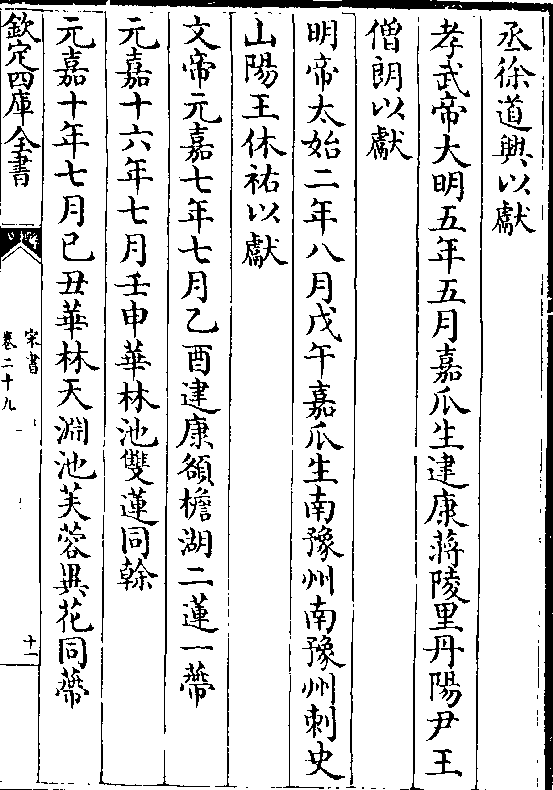 丞徐道興以獻
孝武帝大明五年五月嘉瓜生建康蔣陵里丹陽尹王
僧朗以獻
明帝太始二年八月戊午嘉瓜生南豫州南豫州刺史
山陽王休祐以獻
文帝元嘉七年七月乙酉建康頟檐湖二蓮一蔕
元嘉十六年七月壬申華林池雙蓮同榦
元嘉十年七月己丑華林天淵池芙蓉異花同蔕
欽定四庫全書
宋書
卷二十九
十一